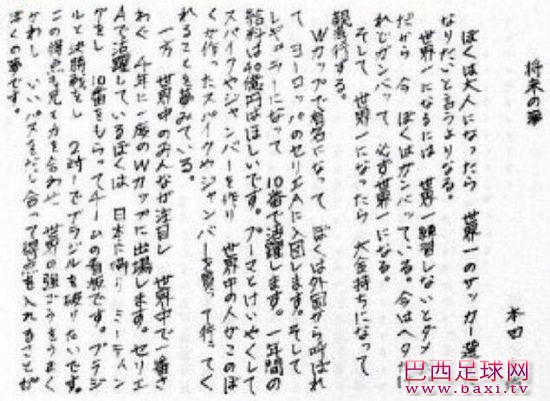 将来の夢
本田
ぼくは大人になったら 世界一のサッカー選
なりたいと言うよりなる。
世界一になるには 世界一練習しないとダメ
だから 今 ぼくはガンバっている。今はヘタだ
れどガンバって 必ず世界一になる。
そして 世界一になったら 大金持ちになって
親孝行する。
Wカップで有名になって ぼくは外国から呼ばれ
て ヨーロッパのセリエAに入団します。そして
レギュラーになって 10番で活躍します。一年間の
給料は40億円はほしいです。プーマとけいやくして
スパイクやジャンバーを作り 世界中の人がこのぼ
くが作ったスパイクやジャンバーを買って行ってく
れることを夢みている。
一方 世界中のみんなが注目し 世界中で一番さ
わぐ 4年に一度のWカップに出場します。セリエ
Aで活躍しているぼくは 日本に帰り ミーティン
グをし 10番をもらってチームの看板です。ブラジ
ルと決勝戦をし 2対1でブラジルを破りたいです。
この得点も兄と力を合わせ 世界の強ごうをうまく
かわし いいパスをだし合って得点を入れることが
ぼくの夢です。
巴西足球网
www.baxi.tv